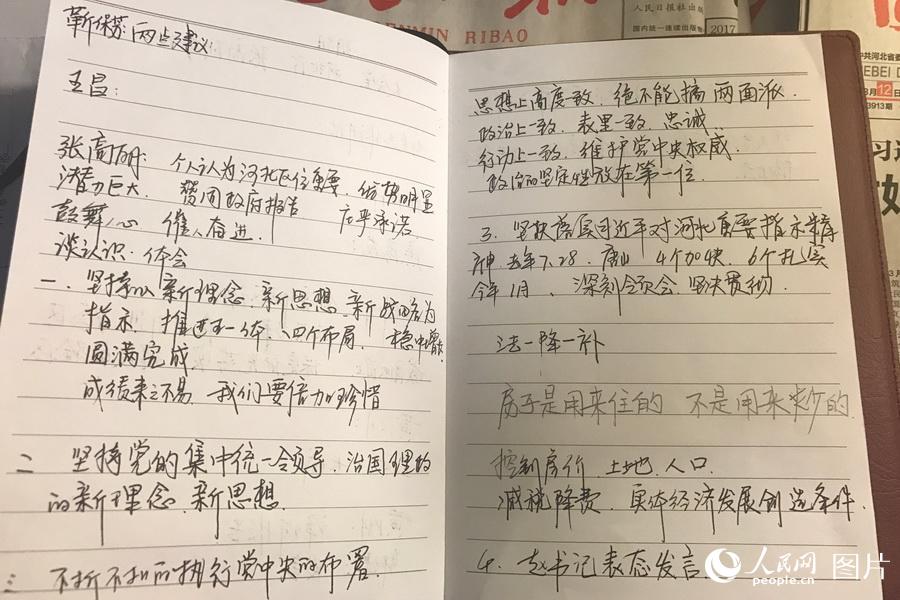 人民日报
RENMIN RIBAO
人民日报社出版
国内统一连续出版
2017
中共河北省委
HEBEI D
3月12日
3913
习近
靳保芳: 两点建议:
王昌:
张高丽: 个人认为河北区位重要、优势明显
潜力巨大 赞同政府报告 庄严承诺
鼓舞人心 催人奋进.
谈认识、体会
一、坚持以新理念、新思想、新战略为
指示 推进五一体、四个布局、稳中
圆满完成
成绩来之不易、我们要倍加珍惜
二 坚持党的集中统一领导、治国理政
的新理念、新思想
三 不折不扣的执行党中央的布署.
思想上高度一致、绝不能搞两面派.
政治上一致、表里一致、忠诚.
行动上一致、维护党中央权威.
政治的坚定性放在第一位.
3. 坚决落实习近平对河北重要指示精
神. 去年7.28、唐山 4个加快、6个扎实
今年1月、深刻领会、坚决贯彻.
去一降一补
房子是用来住的 不是用来炒的.
控制房价 土地、人口.
减税降费、实体经济发展创造条件.
4. 赵书记表态发言
人民网 图片
people.cn